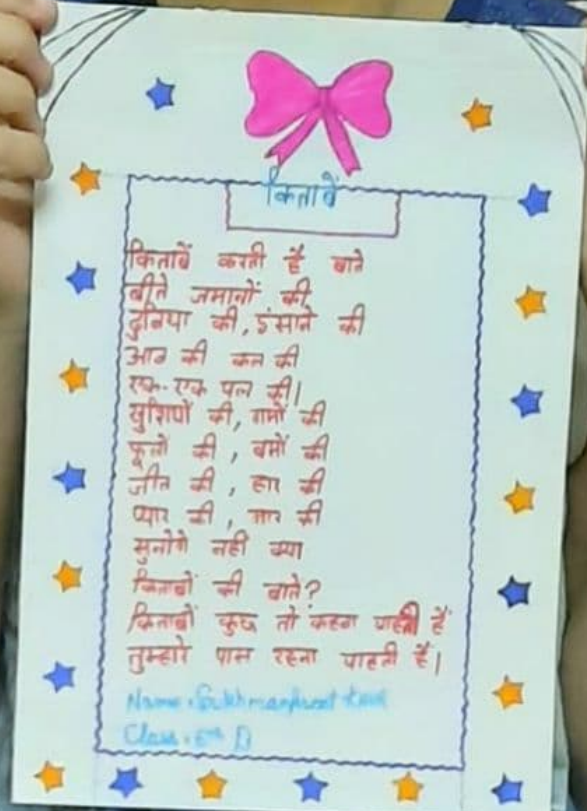 किताबें
किताबें करती है बाते
बीते जमानों की
दुनिया की, इंसाने की
आज की कल की
एक-एक पल की।
खुशियों की, गमों की
फूलों की, बमों की
जीत की, हार की
प्यार की, मार की
सुनोगे नही क्या
किताबों की बाते?
किताबों कुछ तो कहना चाहती हैं
तुम्हारे पास रहना चाहती हैं।
Name
Class D